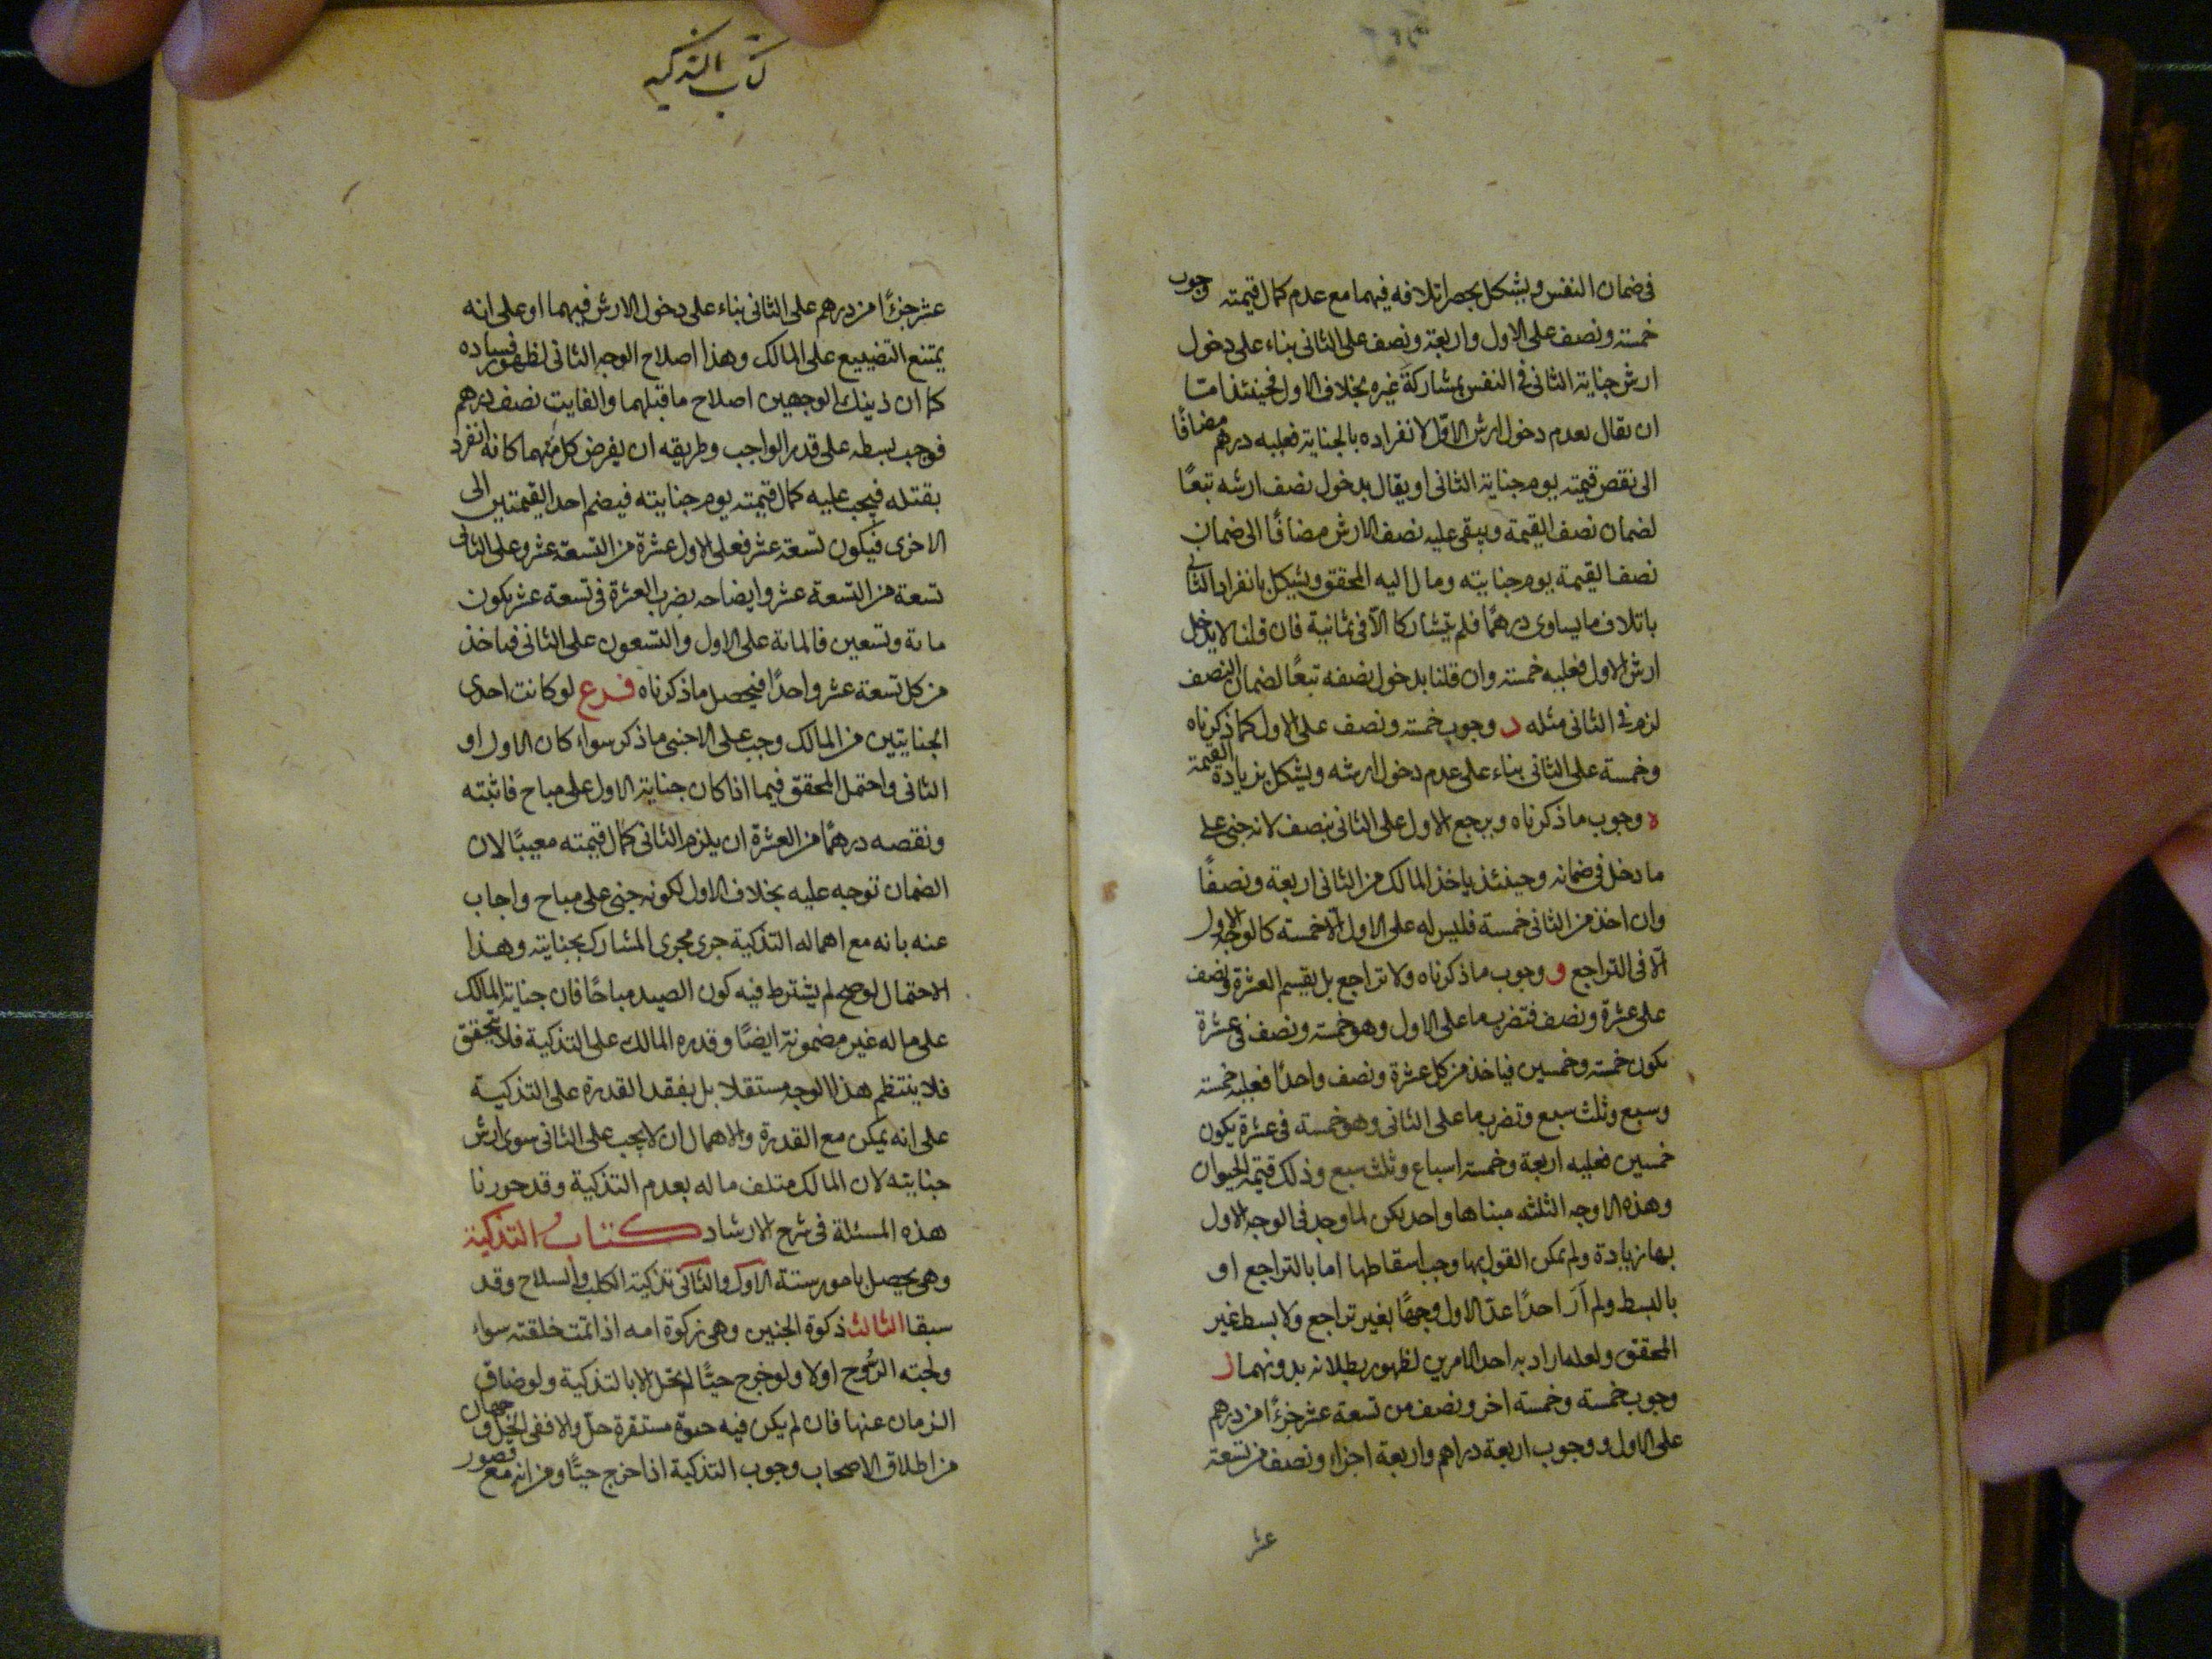 في ضمان النفس ويشكل بحصر اتلافه فيهما مع عدم كمال قيمته وجوب
خمسة ونصف على الاول واربعة ونصف على الثاني بناء على دخول
ارش جناية الثاني في النفس بمشاركة غيره بخلاف الاول فحينئذ امّا
ان يقال بعدم دخول ارش الاوّل لانفراده بالجناية فعليه درهم مضافًا
الى نقص قيمته يوم جناية الثاني او يقال بدخول نصف ارشه تبعًا
لضمان نصف القيمة ويبقى عليه نصف الارش مضافًا الى ضمان
نصف القيمة يوم جنايته ومال اليه المحقق ويشكل بانفراد الثاني
باتلاف ما يساوى درهمًا فلم يتشاركا الّا في ثمانية فان قلنا لا يدخل
ارش الاول فعليه خمسة وان قلنا بدخول نصفه تبعًا لضمان النصف
لزم في الثاني مثله د وجوب خمسة ونصف على الاول كما ذكرناه
وخمسة على الثاني بناء على عدم دخول ارشه ويشكل بزيادة القيمة
ه وجوب ما ذكرناه ويرجع الاول على الثاني بنصف لانه جنى على
ما دخل في ضمانه وحينئذ ياخذ المالك من الثاني اربعة ونصفًا
وان اخذ من الثاني خمسة فليس له على الاول الّا خمسة كالوجه الاول
الّا في التراجع و وجوب ما ذكرناه ولا تراجع بل يقسم العشرة ونصف
على عشرة ونصف فتضرب ما على الاول وهو خمسة ونصف في عشرة
يكون خمسة وخمسين فياخذ من كل عشرة ونصف واحدًا فعليه خمسة
وسبع وثلث سبع وتضرب ما على الثاني وهو خمسة في عشرة يكون
خمسين فعليه اربعة وخمسة اسباع وثلث سبع وذلك قيمة الحيوان
وهذه الاوجه الثلثه مبناها واحد لكن لما وجد في الوجه الاول
بها زيادة ولم يمكن القول بها وجب اسقاطها اما بالتراجع او
بالبسط ولم اَرَ احدًا عدّ الاول وجهًا بغير تراجع ولا بسط غير
المحقق ولعله اراد به احد الامرين لظهور بطلانه بدونهما ز
وجوب خمسة وخمسة اخر ونصف من تسعة عشر جزءًا من درهم
على الاول ووجوب اربعة دراهم واربعة اجزاء ونصف من تسعة
عشر
كتاب التذكيه
عشر جزءًا من درهم على الثاني بناء على دخول الارش فيهما او على انه
يمتنع التضييع على المالك وهذا اصلاح الوجه الثاني لظهور فساده
كما ان ذينك الوجهين اصلاح ما قبلهما والفايت نصف درهم
فوجب بسطه على قدر الواجب وطريقه ان يفرض كل منهما كانه انفرد
بقتله فيجب عليه كمال قيمته يوم جنايته فيضم احد القيمتين الى
الاخرى فيكون تسعة عشر فعلى الاول عشرة من التسعة عشر وعلى الثاني
تسعة من التسعة عشر وايضاحه بضرب العشرة في تسعة عشر يكون
ماىة وتسعين فالماىة على الاول والتسعون على الثاني فياخذ
من كل تسعة عشر واحدًا فيحصل ما ذكرناه فرع لو كانت احدى
الجنايتين من المالك وجب على الاجنبى ما ذكر سواء كان الاول او
الثاني واحتمل المحقق فيما اذا كان جناية الاول على مباح فاثبته
ونقصه درهمًا من العشرة ان يلزم الثاني كمال قيمته معيبًا لان
الضمان توجه عليه بخلاف الاول لكونه جنى على مباح واجاب
عنه بانه مع اهماله التذكية جرى مجرى المشارك بجنايته وهذا
الاحتمال لو صح لم يشترط فيه كون الصيد مباحًا فان جناية المالك
على ماله غير مضمونة ايضًا وقدره المالك على التذكية فلا يتحقق
فلا ينتظم هذا الوجه مستقلا بل بفقد القدرة على التذكية
على انه يمكن مع القدرة والاهمال ان لا يجب على الثاني سوى ارش
جنايته لان المالك متلف ماله بعدم التذكية وقد حررنا
هذه المسئلة في شرح الارشاد كتاب التذكية
وهي يحصل بامور ستة الاول والثاني تذكية الكلب والسلاح وقد
سبقا الثالث ذكوة الجنين وهي زكوة امه اذا تمت خلقته سواء
ولجته الرُّوح اولا ولو خرج حيًّا لم يحل الا بالتذكية ولو ضاق
الزمان عنها فان لم يكن فيه حيوة مستقرة حلّ والا ففي الحل وجهان
من اطلاق الاصحاب وجوب التذكية اذا خرج حيًّا ومن انه مع قصور